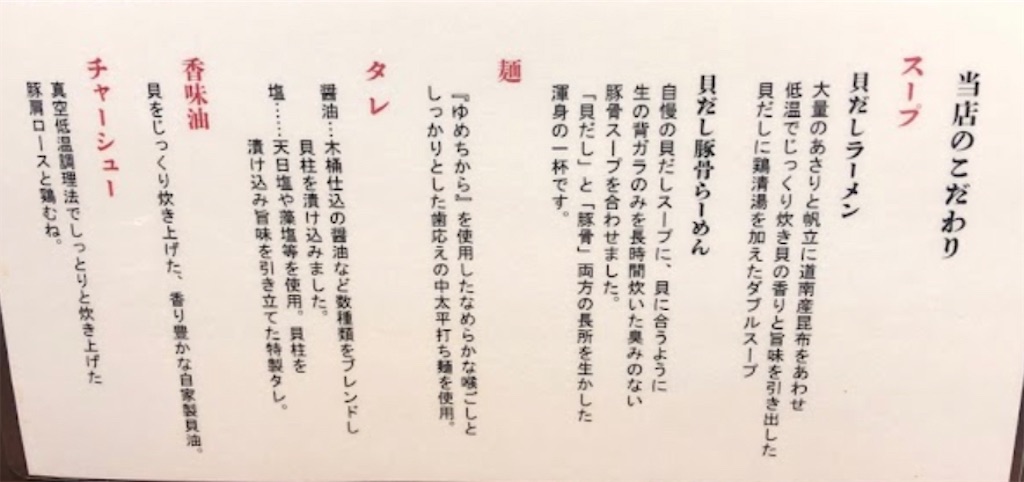 当店のこだわり
スープ
貝だしラーメン
大量のあさりと帆立に道南産昆布をあわせ
低温でじっくり炊き貝の香りと旨味を引き出した
貝だしに鶏清湯を加えたダブルスープ
貝だし豚骨らーめん
自慢の貝だしスープに、貝に合うように
生の背ガラのみを長時間炊いた臭みのない
豚骨スープを合わせました。
「貝だし」と「豚骨」両方の長所を生かした
渾身の一杯です。
麺
『ゆめちから』を使用したなめらかな喉ごしと
しっかりとした歯応えの中太平打ち麺を使用。
タレ
醤油…木桶仕込の醤油など数種類をブレンドし
貝柱を漬け込みました。
塩……天日塩や藻塩等を使用。貝柱を
漬け込み旨味を引き立てた特製タレ。
香味油
貝をじっくり炊き上げた、香り豊かな自家製貝油。
チャーシュー
真空低温調理法でしっとりと炊き上げた
豚肩ロースと鶏むね。